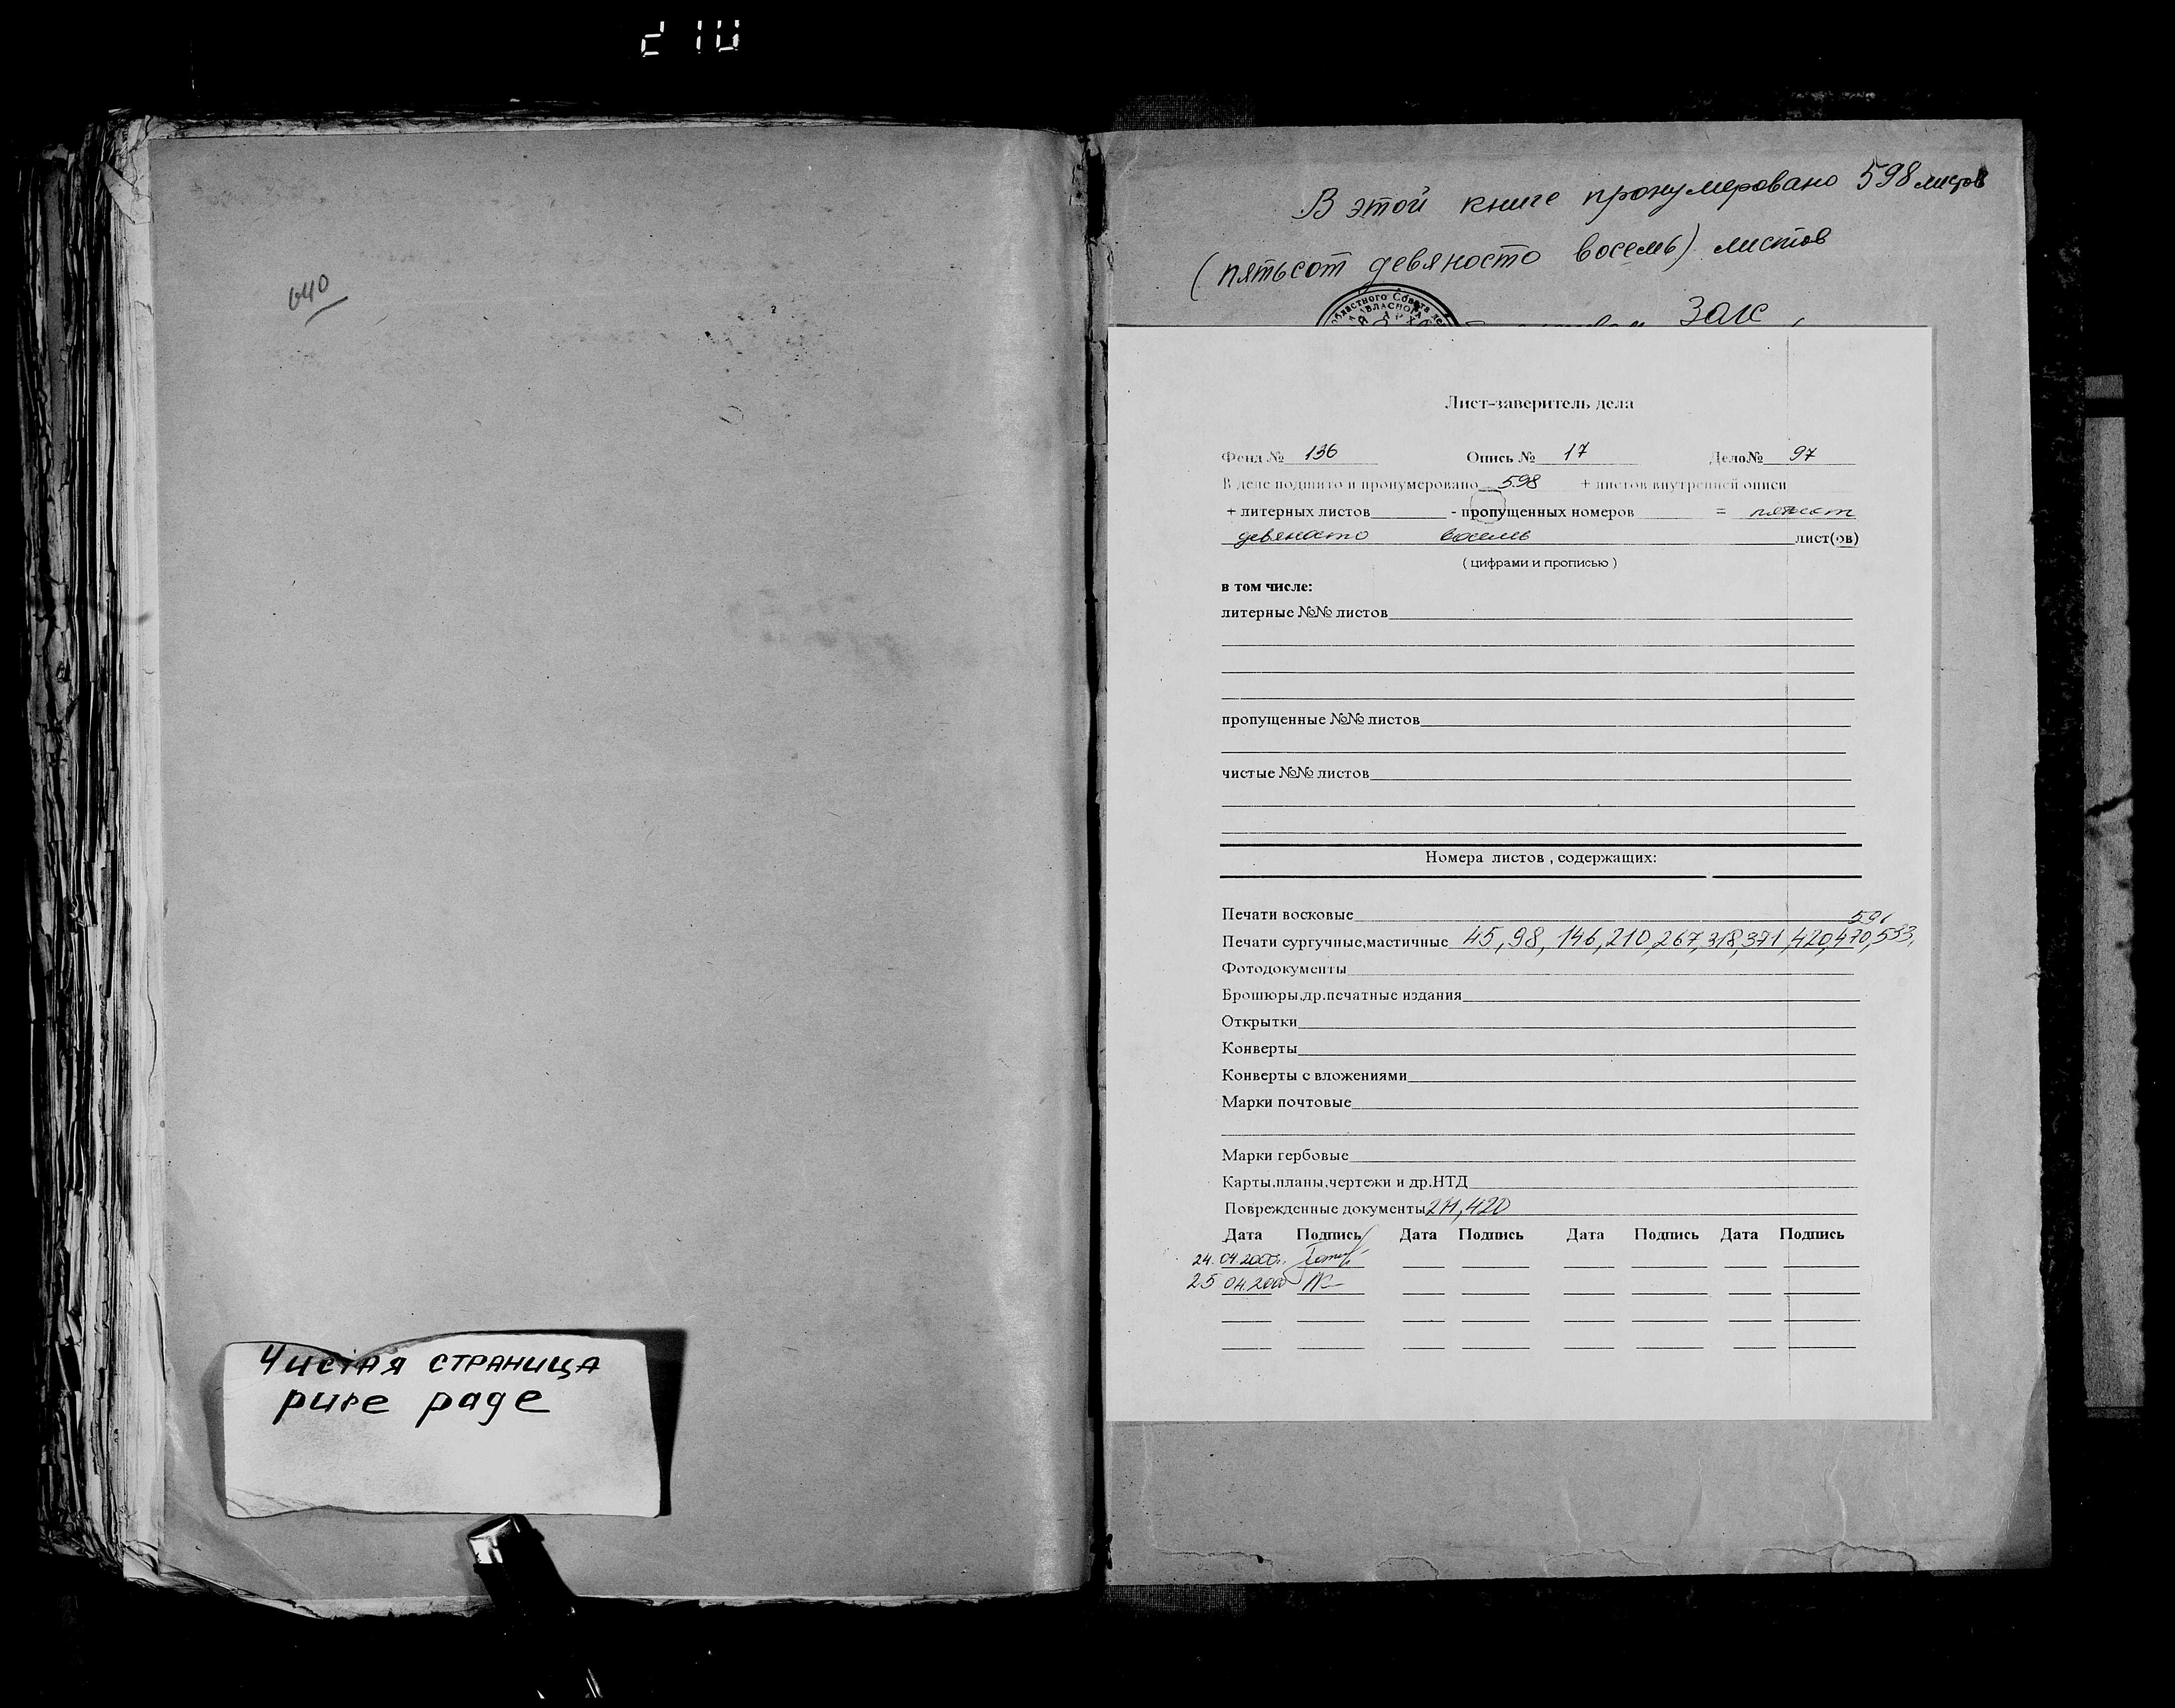 210
640
Чистая страница
pure page
В этой книге пронумеровано 598 листов
(пятьсот девяносто восемь) листов
областного Совета
Зак
Лист-заверитель дела
Фонд № 136 Опись № 17 Дело№ 97
В деле подшито и пронумеровано 598 + листов внутренней описи
+ литерных листов - пропущенных номеров = пятьсот
девяносто восемь лист(ов)
( цифрами и прописью )
в том числе:
литерные №№ листов
пропущенные №№ листов
чистые №№ листов
Номера листов , содержащих:
Печати восковые
591
Печати сургучные,мастичные 45, 98, 146, 210, 267, 318, 371, 420, 470, 533,
Фотодокументы
Брошюры,др.печатные издания
Открытки
Конверты
Конверты с вложениями
Марки почтовые
Марки гербовые
Карты,планы,чертежи и др.НТД
Поврежденные документы 271, 420
Дата Подпись Дата Подпись Дата Подпись Дата Подпись
24.04.2003г.
25 04.200